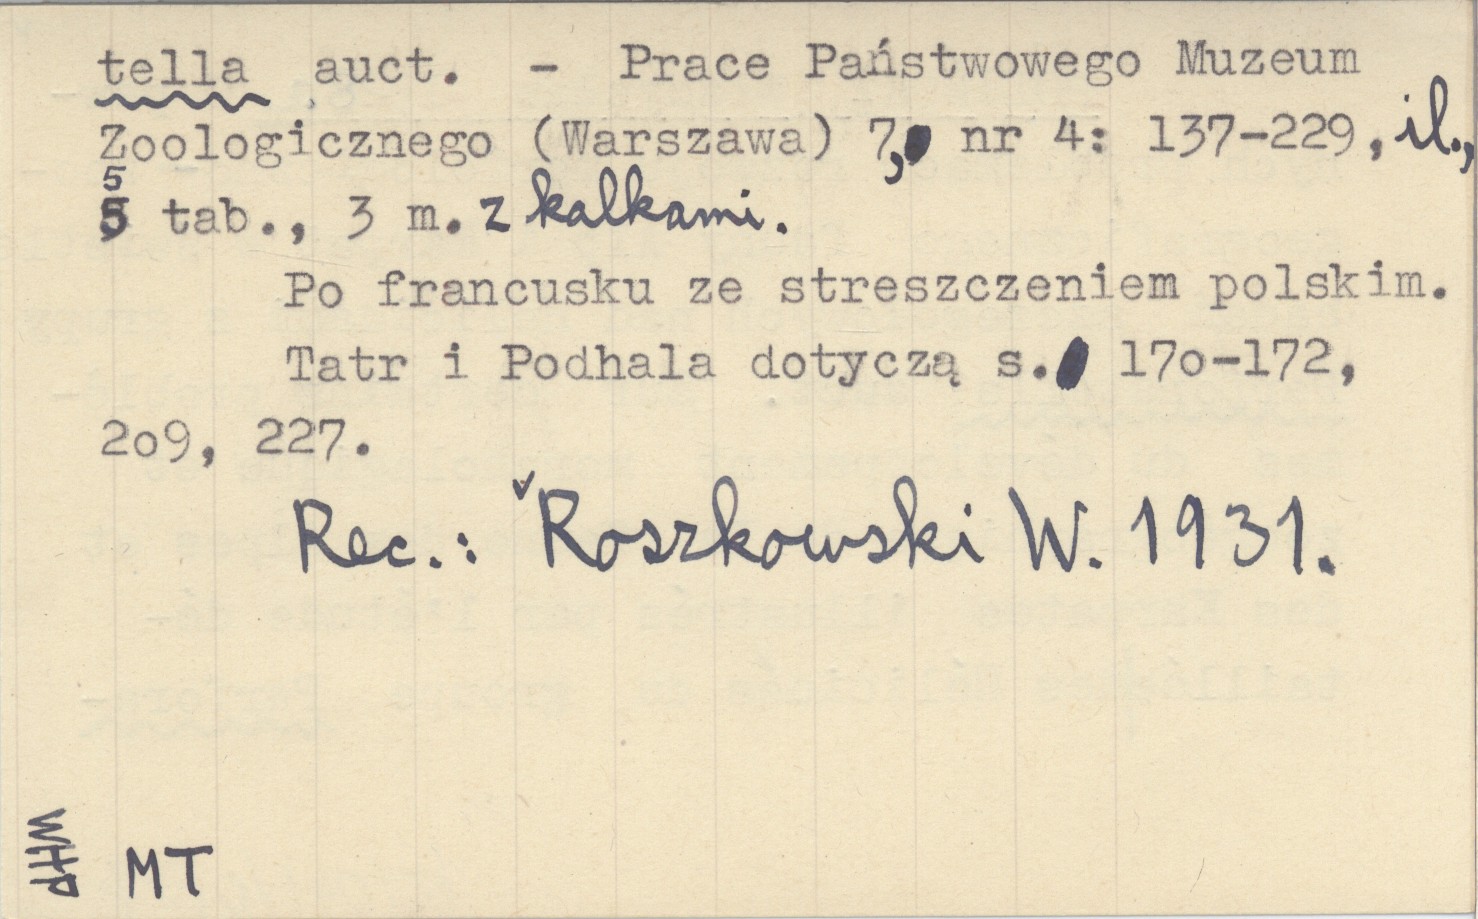 tella auct. - Prace Państwowego Muzeum
Zoologicznego (Warszawa) 7, nr 4: 137-229, il.,
5
5 tab., 3 m. z kalkami.
Po francusku ze streszczeniem polskim.
Tatr i Podhala dotyczą s. 17o-172,
2o9, 227.
Rec.: Roszkowski W. 1931.
WHP
MT